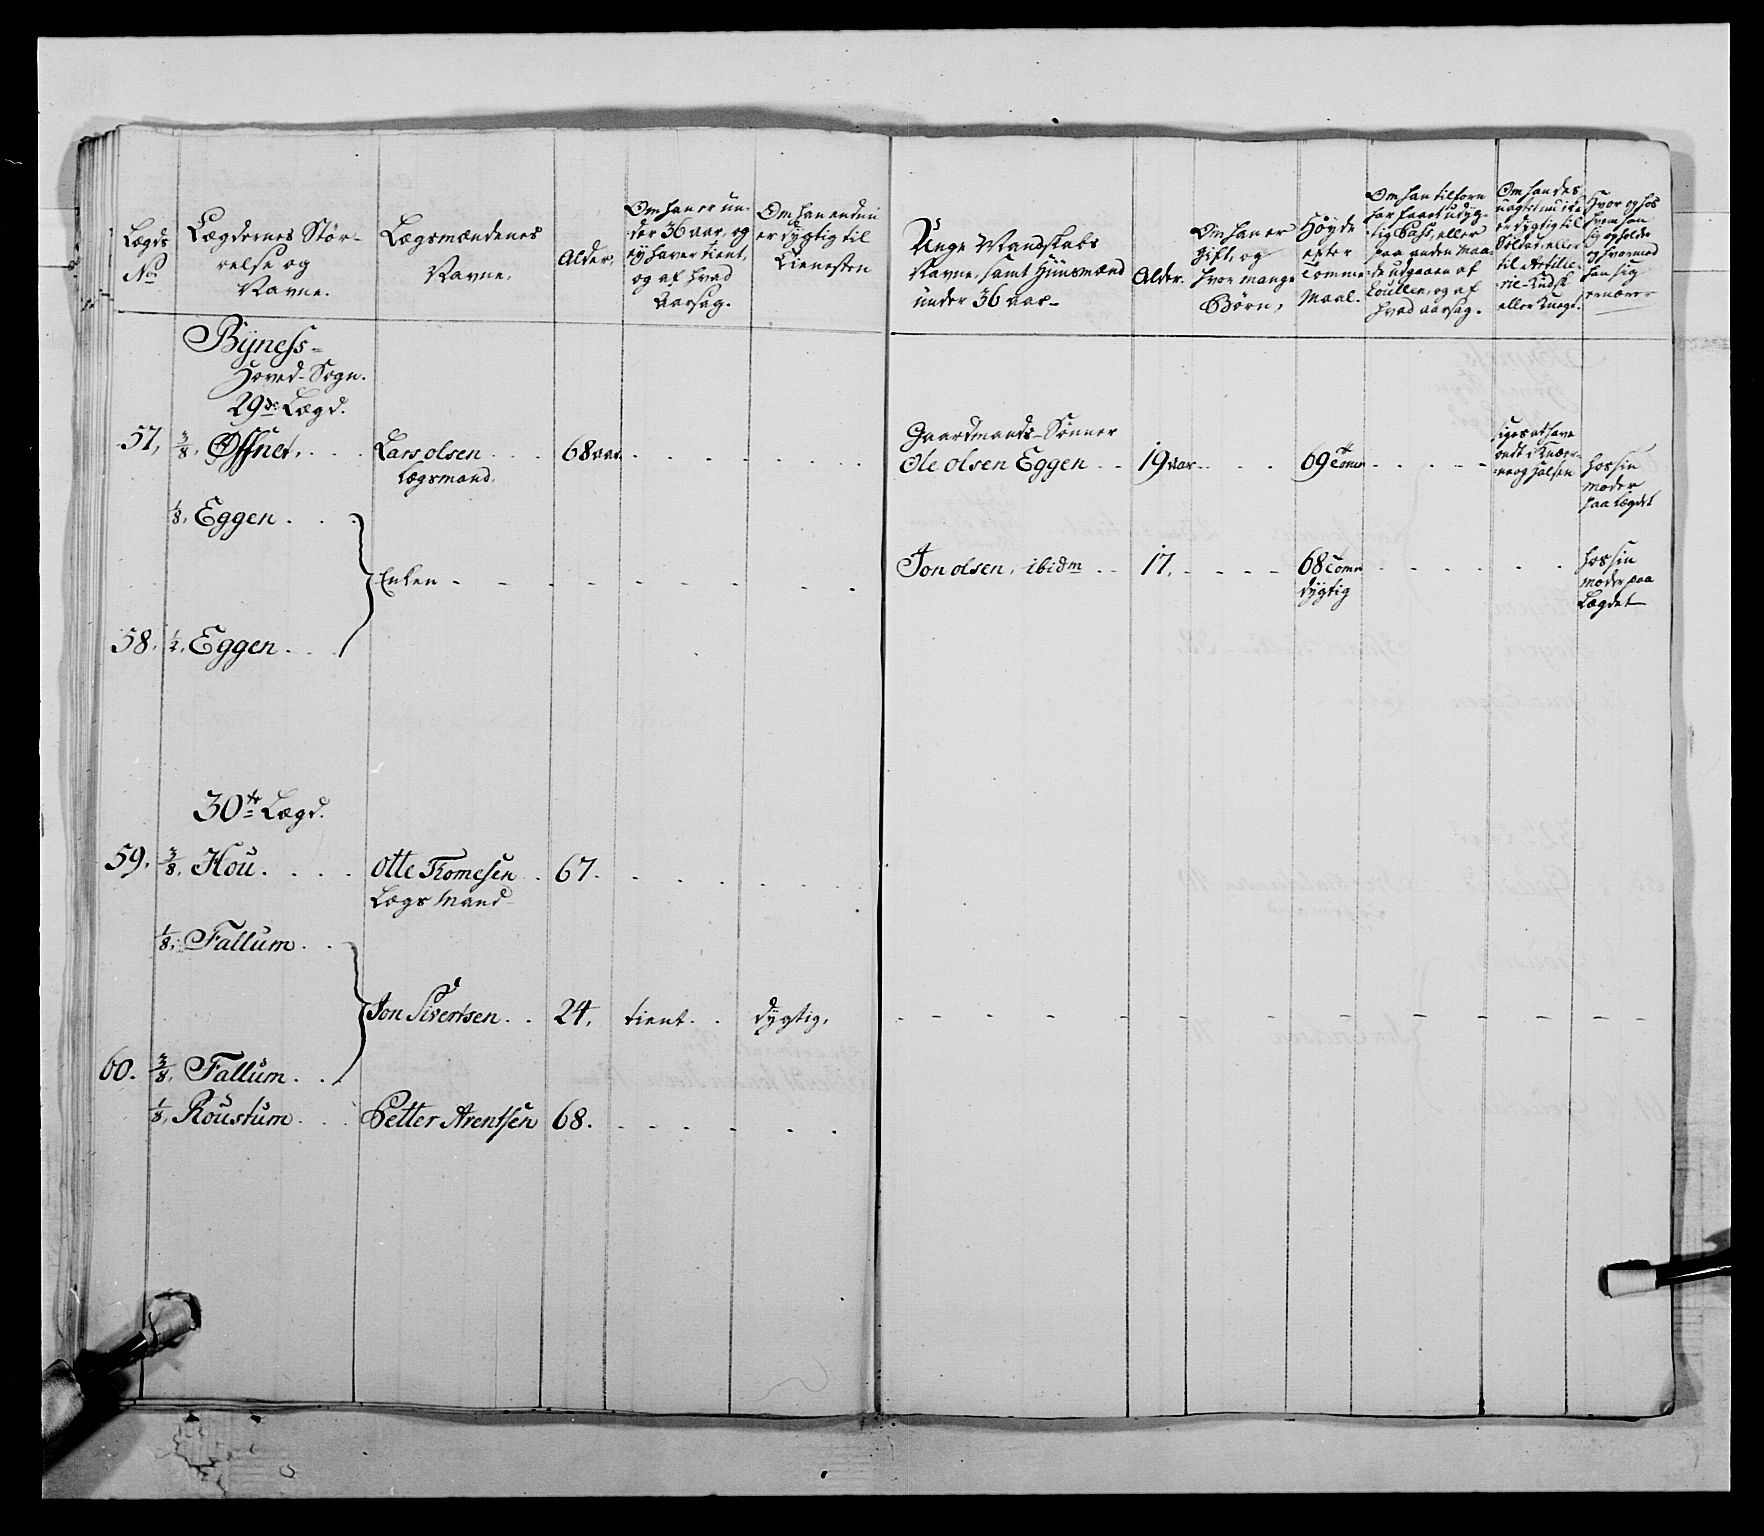 Lægds
No
Lægdernes Stør-
relse og
Navne.
Lægsmændenes
Navne.
Alder.
Om han er un-
der 36 aar, og
ey haver tient,
og af hvad
Aarsag.
Om han endnu
er dygtig til
Tienesten
Unge Mandskabs
Navne, samt Huusmænd
under 36 aar
Alder.
Om han er
gift, og
hvor mange
Børn,
Høyde
efter
Tomme
Maal.
Om han tilforn
har faaet udyg-
tig Pass, eller
paa anden Maa-
de udgaaen af
Roullen, og af
hvad aarsag.
Om han des
uagtet nu ikke
er dygtig til
Soldat, eller
til Artille-
rie-Kudsk
eller Knegt.
Hvor og hos
hvem han
sig opholder
og hvormed
han sig
ernærer
Byness-
Hoved-Sogn.
29de Lægd.
57, 3/8, Øffnet, Lars olsen 68 aar
Lægsmand.
Gaardmands-Sønner
Ole olsen Eggen 19 aar 69 Tom
siges at have
ondt i Knæer-
ne og halsen
hos sin
moder
paa Lægdet
1/8, Eggen
Enken
Jon olsen, ibidm 17, 68 Tom
dygtig
hos sin
moder paa
Lægdet
58, 1/2, Eggen
30te Lægd.
59, 3/8, Hou Otte Tomesen 67.
Lægs Mand
1/8, Fallum
Jon Sivertsen 24, tient dygtig,
60. 3/8, Fallum
1/8, Roustum Petter Arentsen 68.